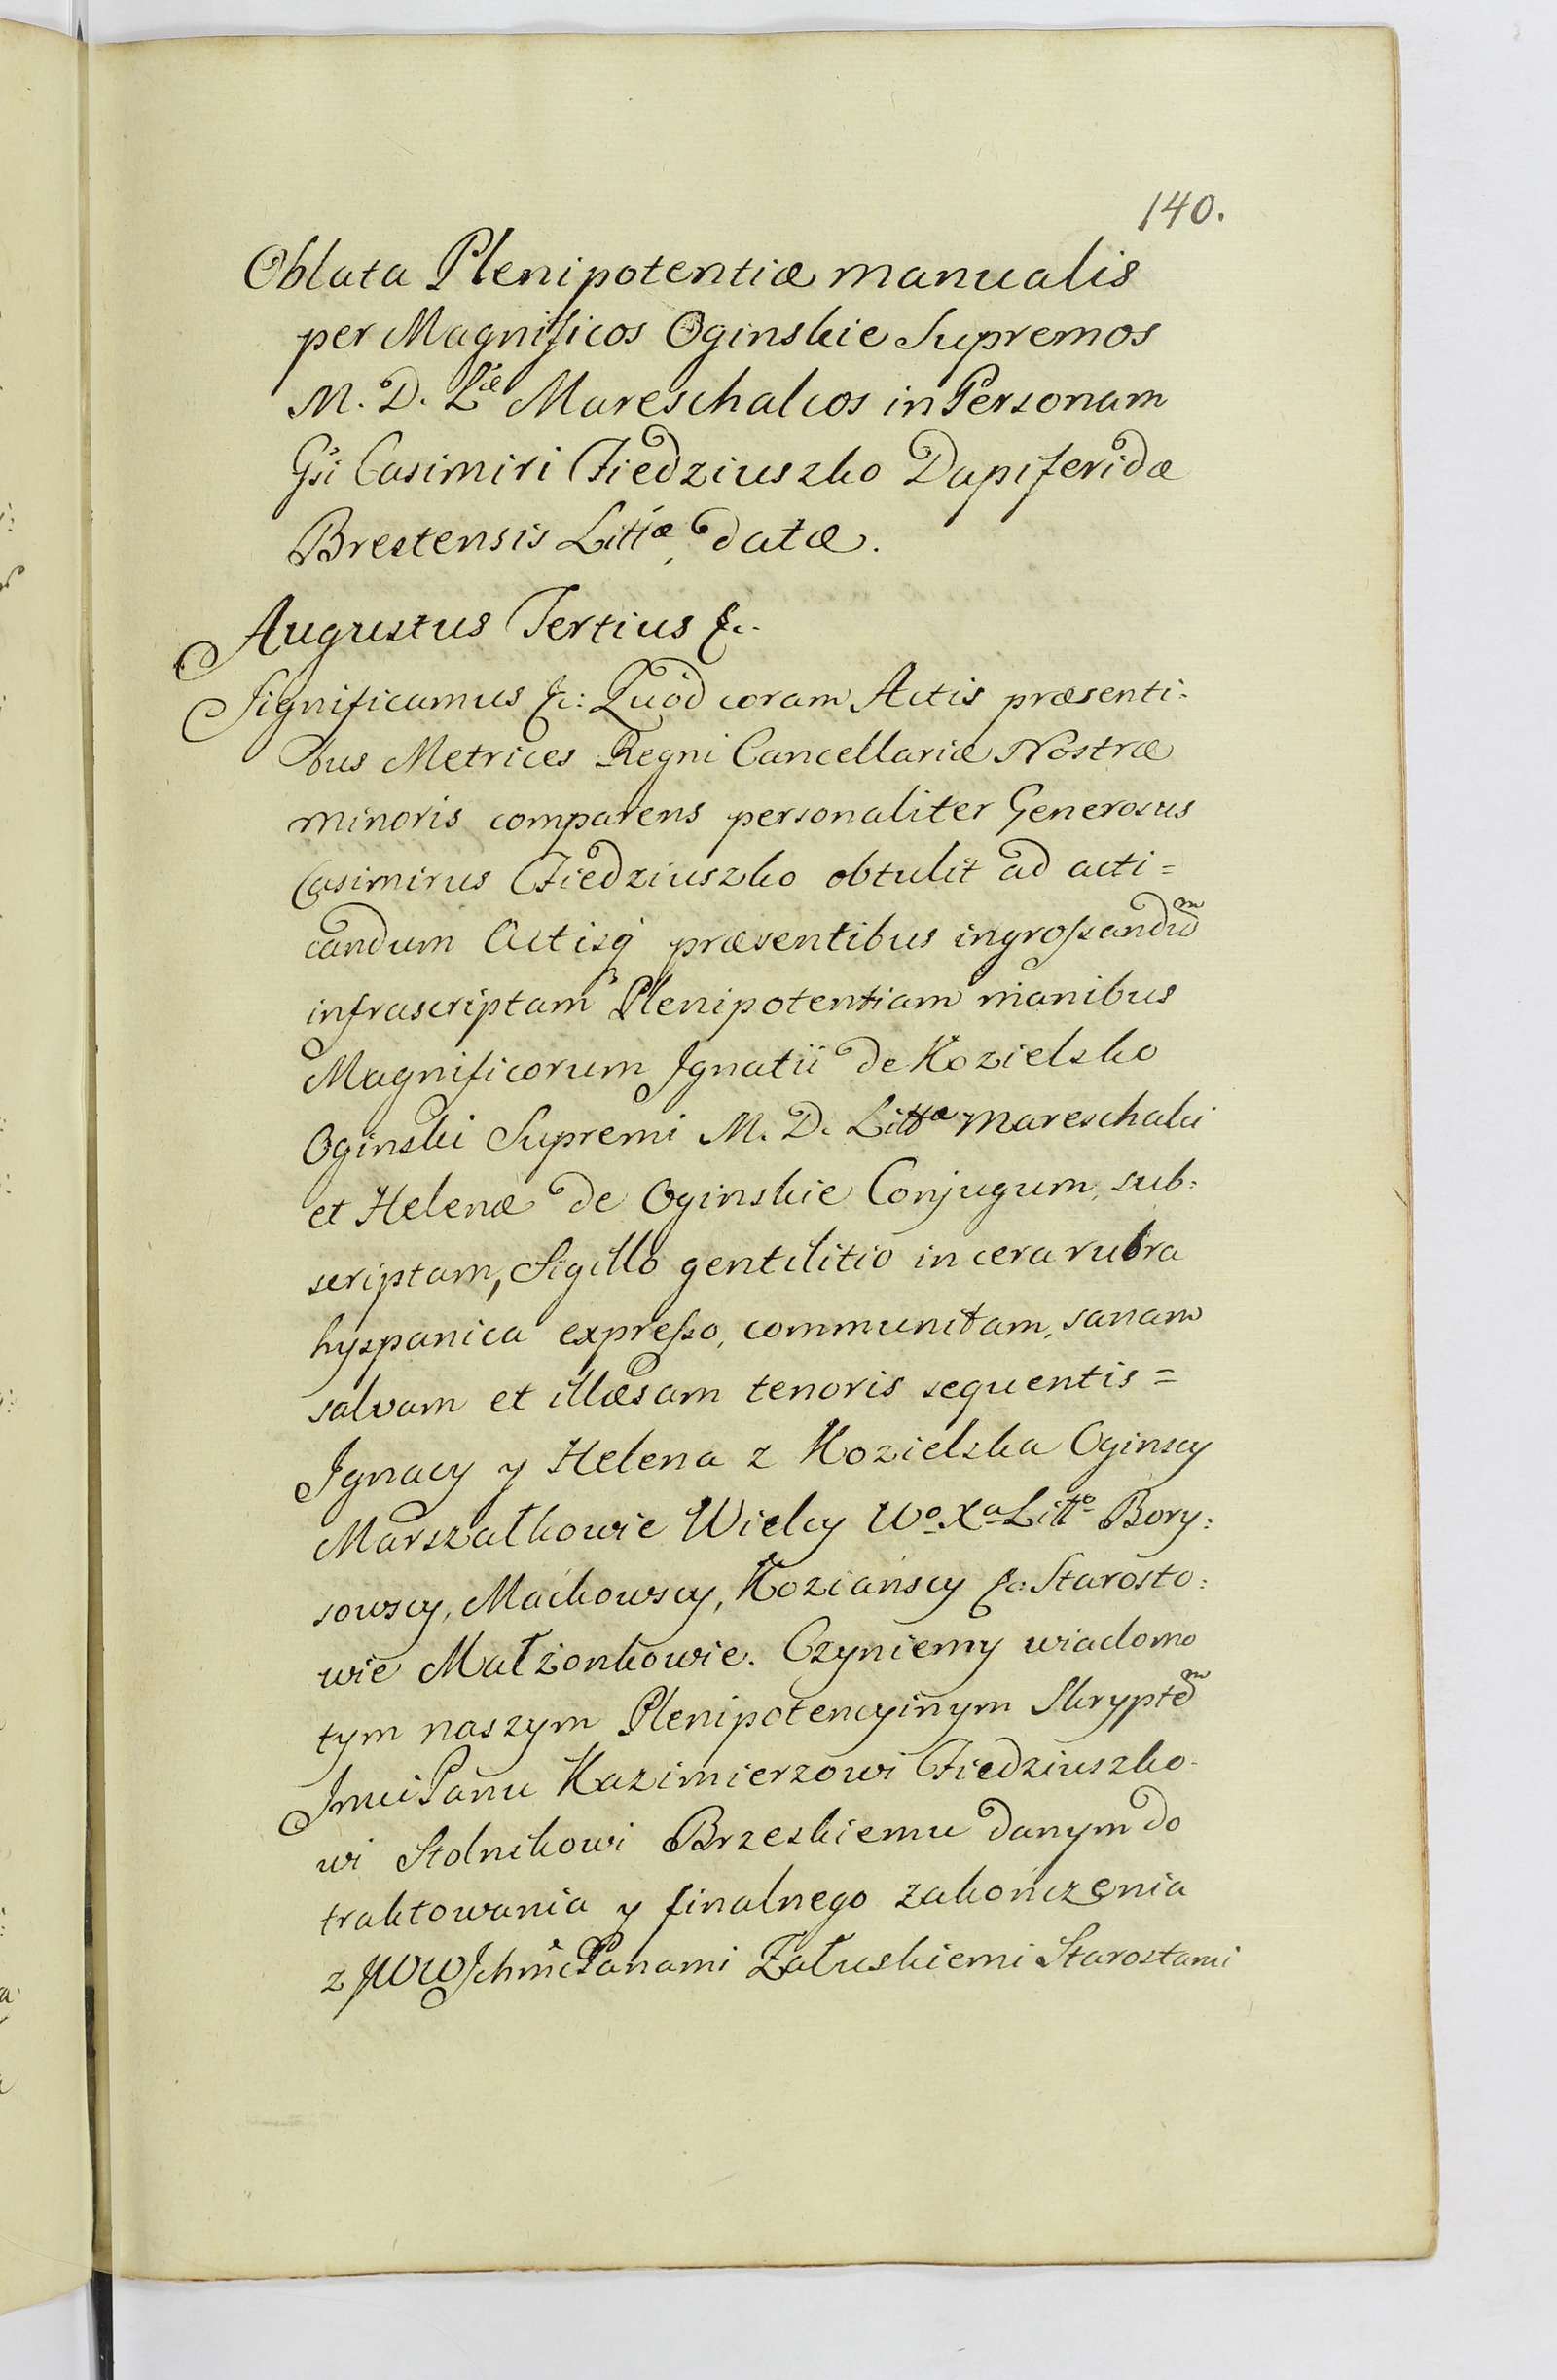 140.
Oblata Plenipotentiæ manualis
per Magnificos Oginskie Supremos
M. D. Lᵃᵉ Mareschalcos in Personam
Gsi Casimiri Fiedziuszko Dapiferidæ
Brestensis Littᵃᵉ, datæ.
Augustus Tertius &c.
Significamus &c: Quòd coram Actis præsenti-
bus Metrices Regni Cancellariæ Nostræ
minoris comparens personaliter Generosus
Casimirus Fiedziuszko obtulit ad acti=
candum Actisq́ præsentibus ingrossandũ
infrascriptam Plenipotentiam manibus
Magnificorum Ignatii de Kozielsko
Oginski Supremi M. D. Littᵃᵉ Mareschalci
et Helenæ de Oginskie Conjugum, sub:
scriptam, Sigillo gentilitio in cera rubra
hyspanica expresso, communitam, sanam
salvam et illæsam tenoris sequentis =
Ignacy y Helena z Kozielska Oginscy
Marszałkowie Wielcy Wᵒ Xᵃ Littᵒ Bory:
sowscy, Maikowscy, Koziańscy &c: Starosto:
wie Małżonkowie. Czyniemy wiadomo
tym naszym Plenipotencyinym Skrypteᵐ
Jmci Panu Kazimierzowi Fiedziuszko-
wi Stolnikowi Brzeskiemu danym do
traktowania y finalnego zakończenia
z JWW Ichmć Panami Załuskiemi Starostami